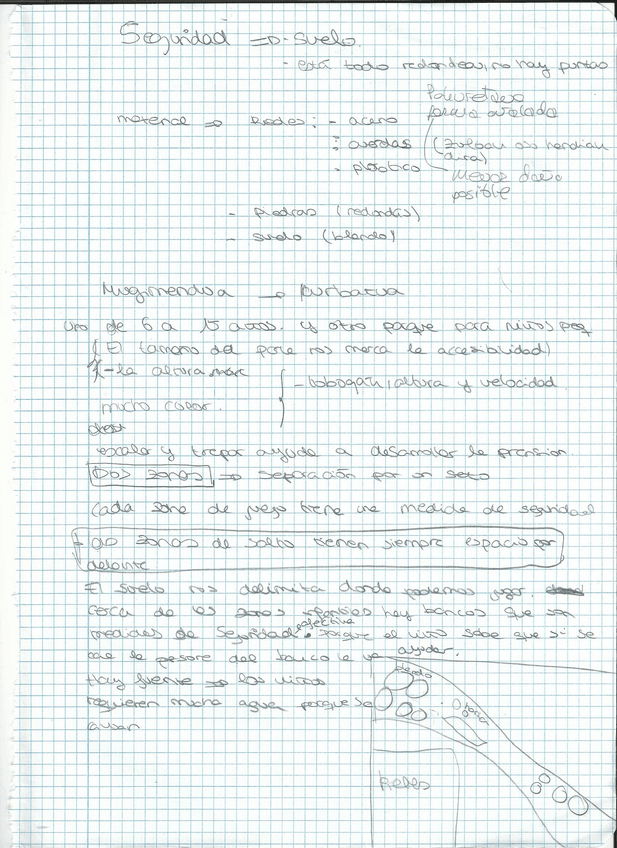 Seguridad => - Suelo.
- está todo redondeas, no hay puntas
material => Redes: - acero
: cuerdas
- plástico
para
(Zulban os hondian
dura)
Menor daño
posible
- piedras (redondas)
- suelo (blando)
Mugimendua -> kurbatua
Uno de 6 a 15 años. y otro parque para niños peq
(El tamaño del parke nos marca la accesibilidad)
- la altura marc
- tobogán, altura y velocidad
mucho color.
escalar y trepar ayuda a desarrollar la prension
Dos zonas => separación por un seto
Cada zona de juego tiene una medida de seguridad
zonas de salto tienen siempre espacio por
delante
El suelo nos delimita donde podemos jugar.
cerca de las zonas infantiles hay bancos que son
medidas de Seguridad afectiva porque el niño sabe que si se
cae la persona del banco le va ayudar.
Hay fuente => los niños
requieren mucha agua porque se
Redes